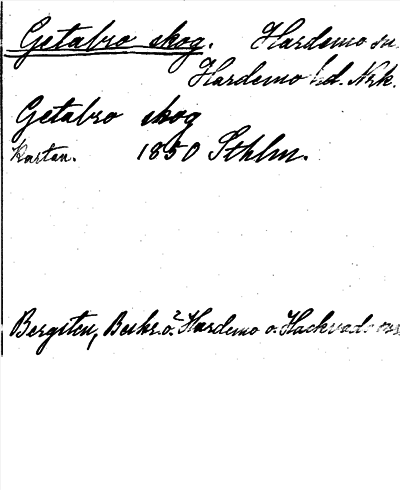 Getabro skog. Hardemo sn.
Hardemo hd. Nrk.
Getabro skog
Kartan. 1850 Sthlm.
Bergsten, Beskr. ö. Hardemo o. Hackvad